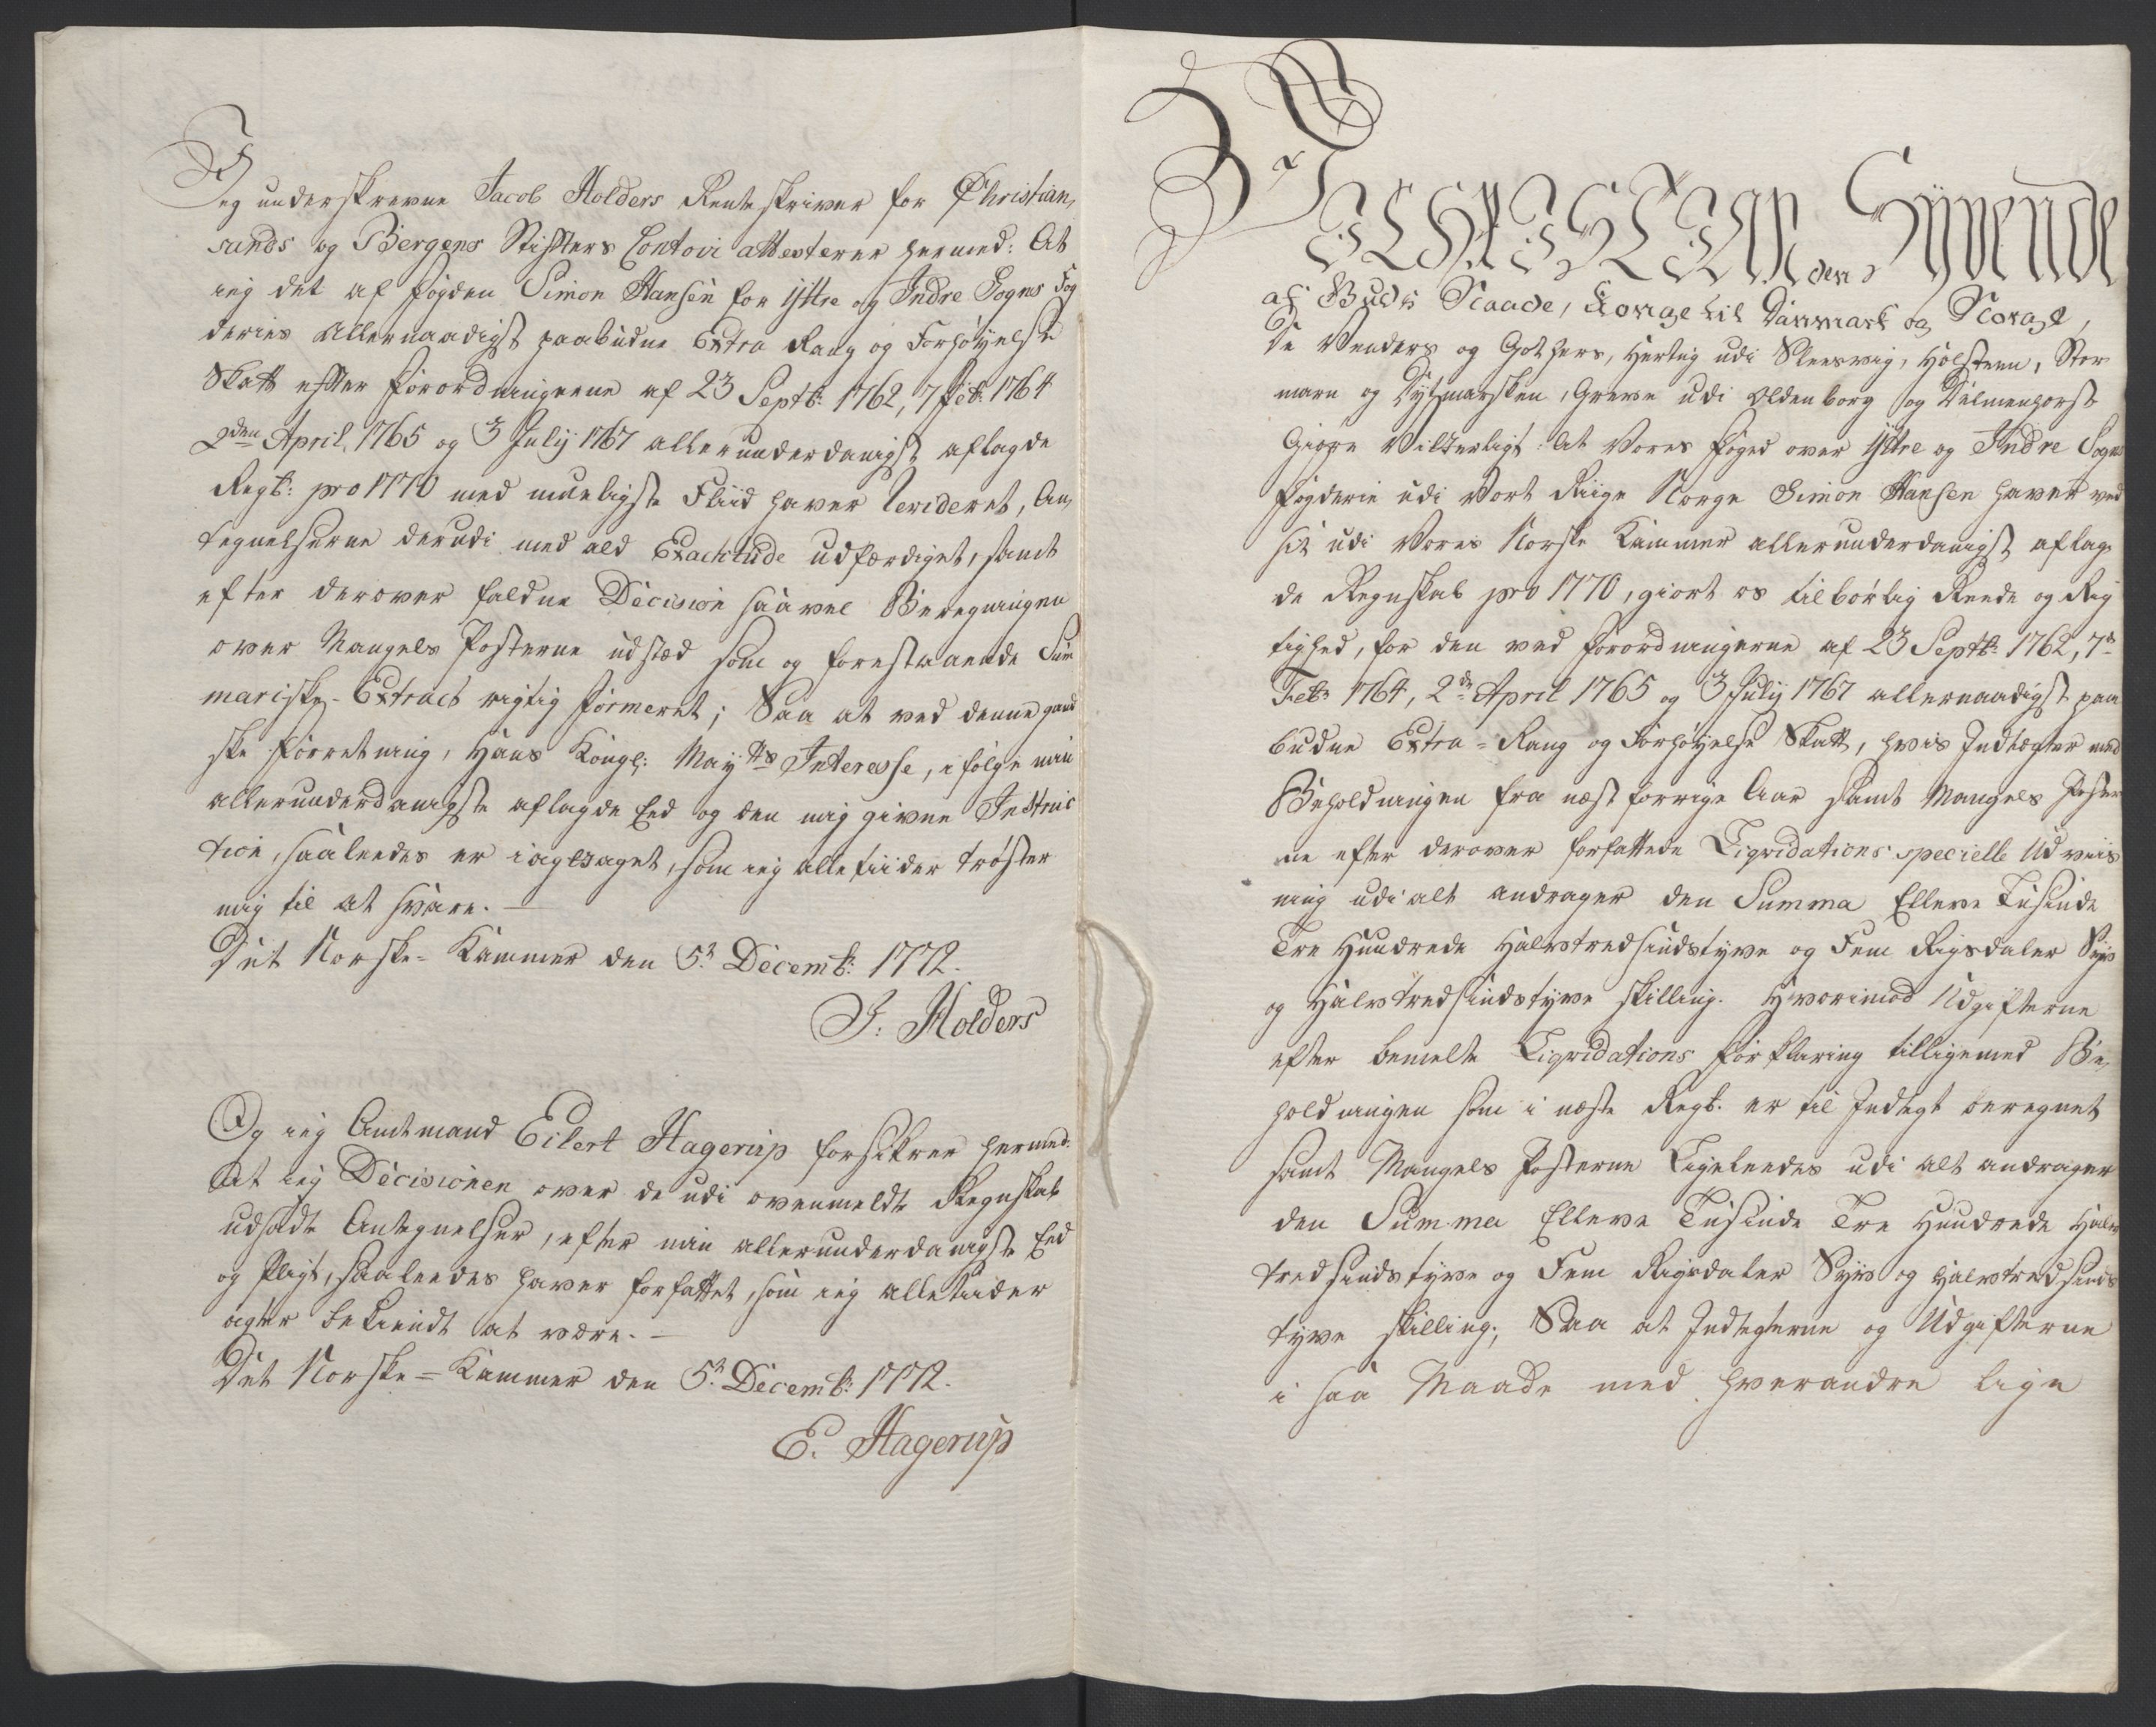 Jeg underskrevne Jacob Holders Renteskriver for Christian,
sands og Bergens Stifters Contoir attesterer hermed: At
ieg det af fogden Simon Hansen for Yttre og Indre Sogns Fog
deries Allernaadigst paabudne Extra Rang og Forhøyelse
Skatt efter forordningerne af 23 Septb: 1762, 7 feb: 1764
2den April, 1765 og 3 Julÿ 1767 allerunderdanigst aflagde
Regsk: pro 1770 med mueligste Fliid haver Revideret, An,
tegnelserne derudi med ald Exactitude udfærdiget, samt
efter derover faldne Decision saavel Beregningen
over Mangels Posterne udsted som og forestaaende Sum
mariske-Extract rigtig formeret; Saa at ved denne gand
ske forretning, Hans Kongl: Mayts Interesse, i følge min
allerunderdanigste aflagde Eed og den mig givne Instruc
tion, saaledes er iagttaget, som ieg alle tiider trøster
mig til at svare. —
Det Norske-Kammer den 5t Decemb: 1772.
J. Holders
Og ieg Amtmand Eilert Hagerup forsikrer hermed:
At ieg Decisionen over de udi ovenmeldte Regnskab
udsadte Antegnelser, efter min allerunderdanigste Eed
og Pligt, saaledes haver forfattet, som ieg alletiider
agter bekiendt at være. —
Det Norske-Kammer den 5t Decemb: 1772.
E. Hagerup
Wi
CHRISTIAN den Syvende
af Guds Naade, Konge til Danmark og Norge,
De Venders og Gothers, Hertug udi Sleesvig, Holsteen, Stor
marn og Dytmarsken, Greve udi Oldenborg og Delmenhorst
Giøre Vitterligt: At Vores foged over Yttre og Indre Sogns
fogderie udi Vort Riige Norge Simon Hansen haver ved
sit udi Vores Norske Kammer allerunderdanigst aflag,
de Regnskab pro 1770, giort os tilbørlig Reede og Rig
tighed, for den ved forordningerne af 23 Septb: 1762, 7de
Feb: 1764, 2de April 1765 og 3 Julÿ 1767 allernaadigst paa
budne Extra-Rang og Forhøyelse Skatt, hvis Indtægter med
Beholdningen fra næst forrige Aar samt Mangels Poster
ne efter derover forfattede Liqvidations specielle Udviis
ning udi alt andrager den Summa Elleve Tusinde
Tre Hundrede Halvtredsindstyve og Fem Rigsdaler Syv
og Halvtredsindstyve skilling. Hvorimod Udgifterne
efter bemelte Liqvidations forklaring tilligemed Be,
holdningen som i næste Regsk. er til Indtegt beregnet
samt Mangels Posterne Ligeleedes udi alt andrager
den Summa Elleve Tusinde Tre Hundrede Halv
tredsindstyve og Fem Rigsdaler Syv og halvtredsinds
tyve skilling; Saa at Indtegterne og Udgifterne
i saa Maade med hverandre lige